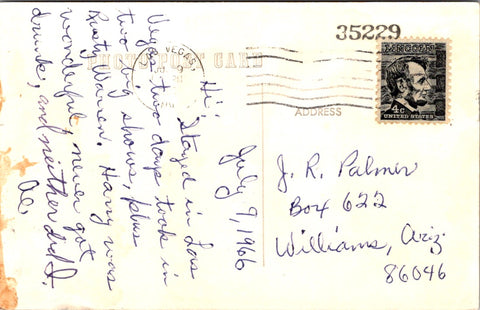 35229
PHOTO POST CARD
VEGAS,
LINCOLN
4c
UNITED STATES
ADDRESS
July 9, 1966
Hi,
Stayed in Las
Vegas two days took in
two big shows, plus
Rusty Warren. Harry was
wonderful, never got
drunk, and neither did I.
Al,
J. R. Palmer
Box 622
Williams, Ariz.
86046